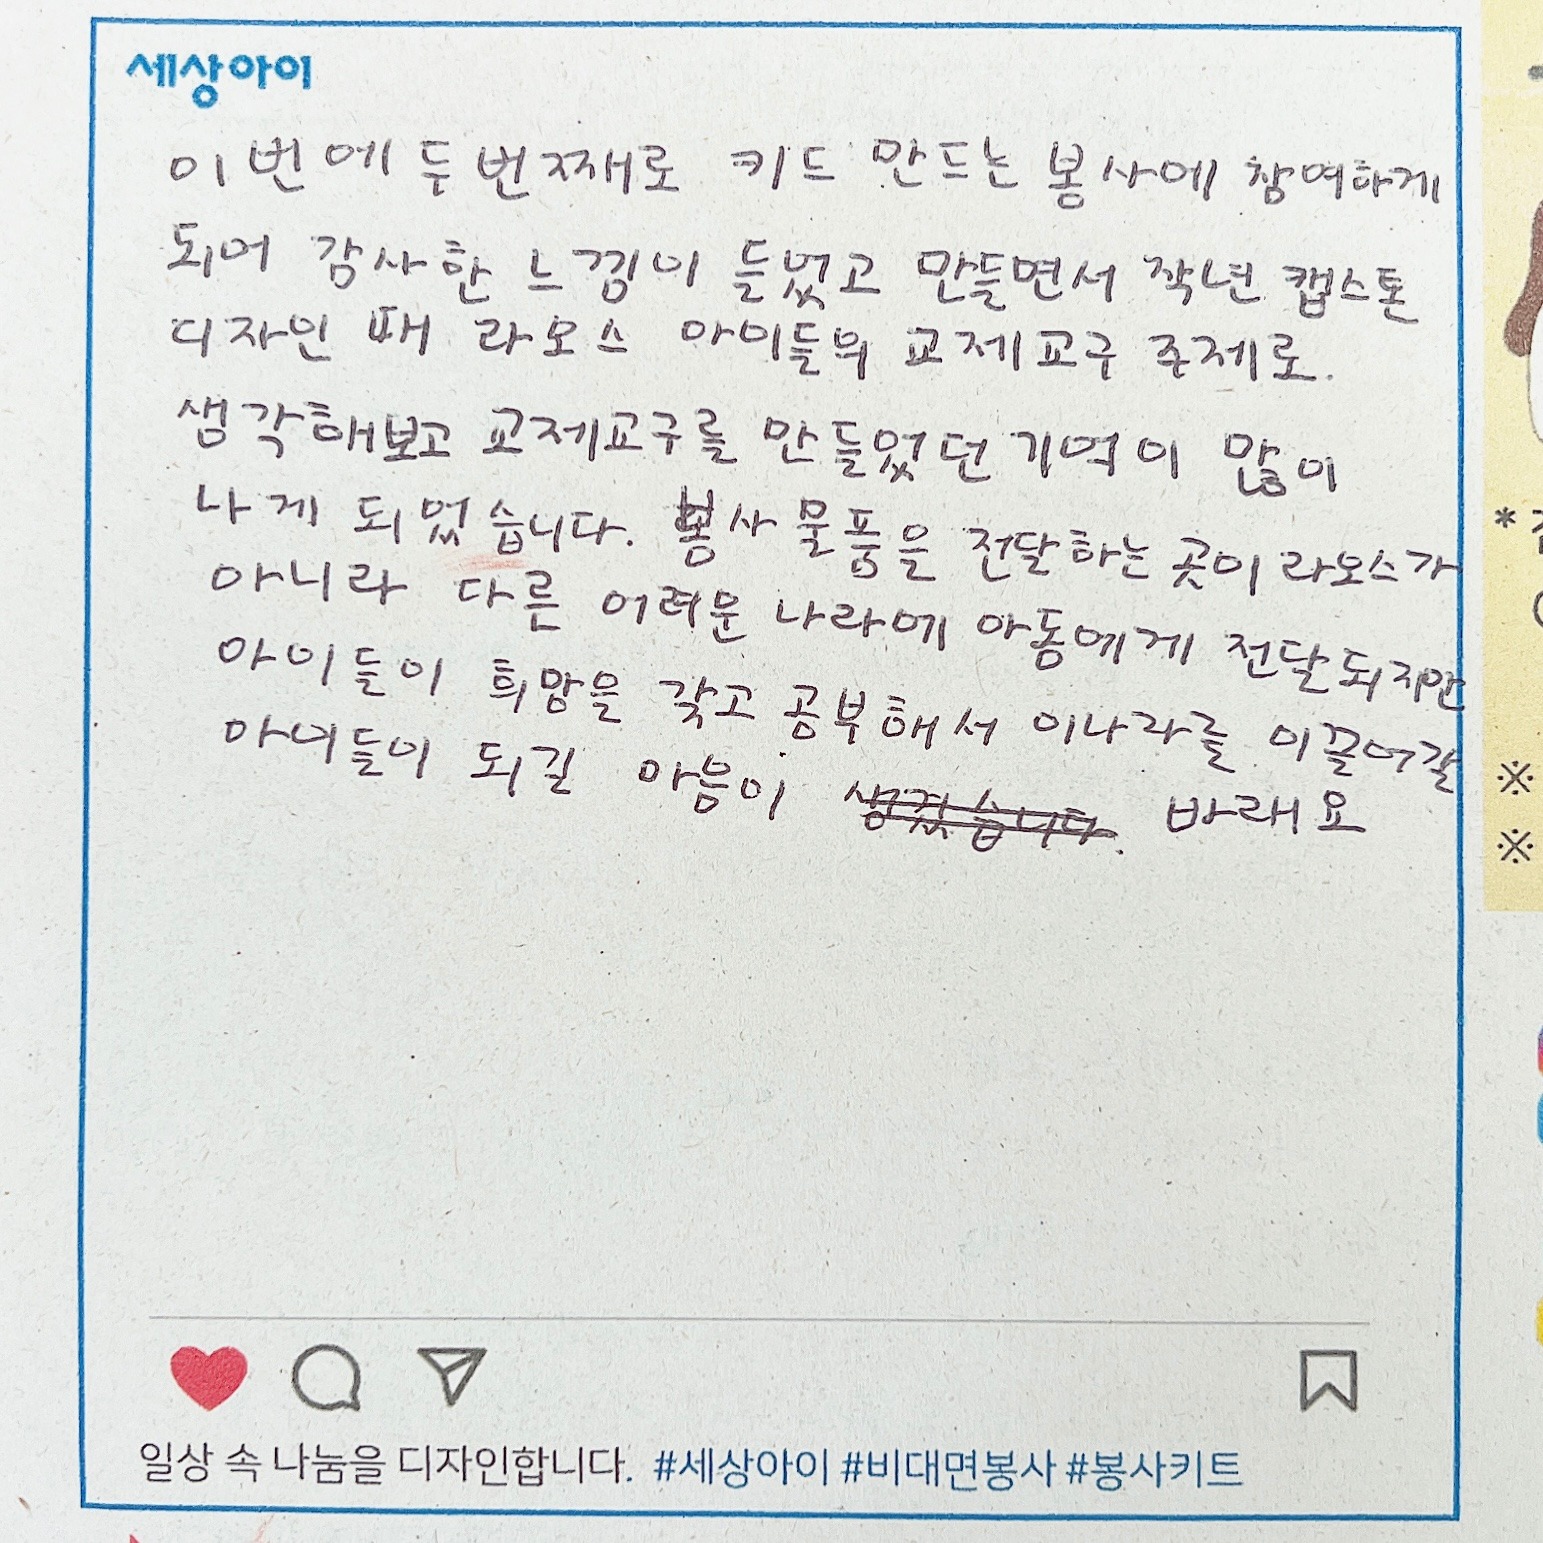 세상아이
이번에 두번째로 키드 만드는 봉사에 참여하게
되어 감사한 느낌이 들었고 만들면서 작년 캡스톤
디자인 때 라오스 아이들의 교제교구 주제로.
생각해보고 교제교구를 만들었던 기억이 많이
나게 되었습니다. 봉사 물품을 전달하는 곳이 라오스가
아니라 다른 어려운 나라에 아동에게 전달되지만
아이들이 희망을 갖고 공부해서 이나라를 이끌어갈
아이들이 되길 마음이 생겼습니다. 바래요
일상 속 나눔을 디자인합니다. #세상아이 #비대면봉사 #봉사키트
*
※
※